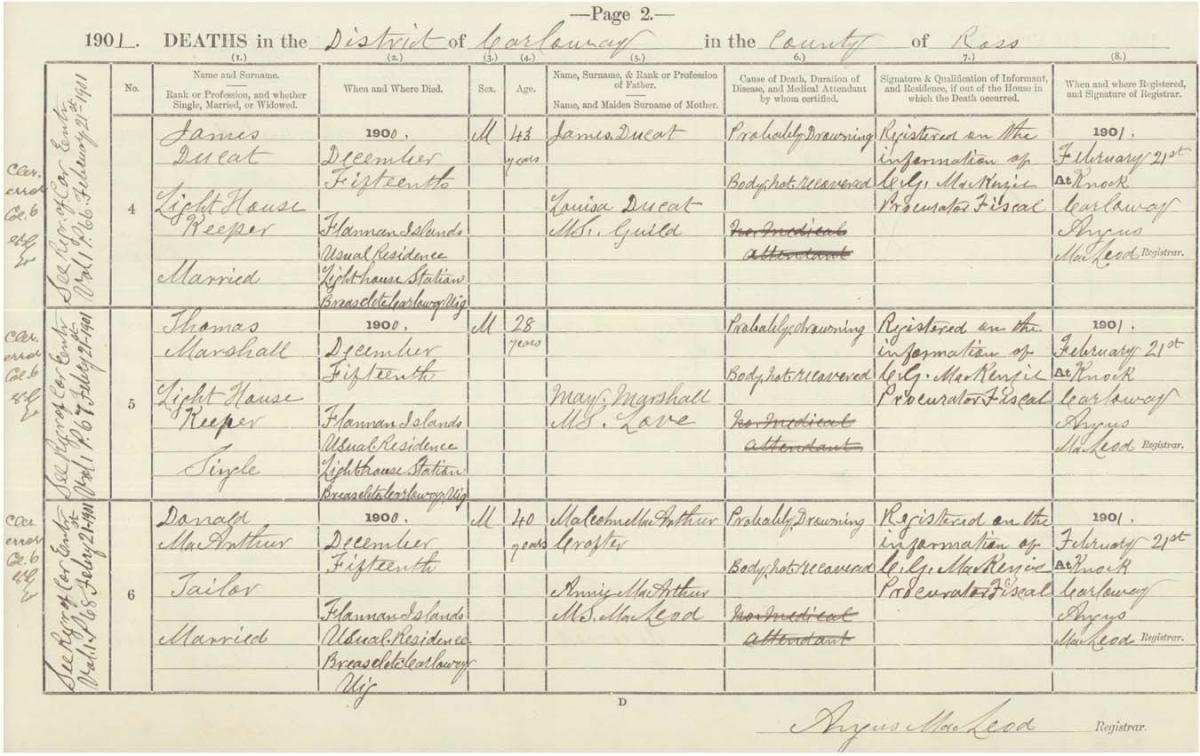 —Page 2.—
1901. DEATHS in the District of Carloway in the County of Ross
(1.) (2.) (3.) (4.) (5.) (6.) (7.) (8.)
No.
Name and Surname.
Rank or Profession, and whether
Single, Married, or Widowed.
When and Where Died.
Sex.
Age.
Name, Surname, & Rank or Profession
of Father.
Name, and Maiden Surname of Mother.
Cause of Death, Duration of
Disease, and Medical Attendant
by whom certified.
Signature & Qualification of Informant,
and Residence, if out of the House in
which the Death occurred.
When and where Registered,
and Signature of Registrar.
Cler.
error
Col. 6
See Regr. of Cor. Entr.
Vol. 1 P. 66 Febury 21st 1901
4
James
Ducat
Light House
Keeper
Married
1900.
December
Fifteenth
Flannan Islands
Usual Residence
Lighthouse Station
Breasclete Carloway Uig
M
43
years
James Ducat
Louisa Ducat
M.S. Guild
Probably Drowning
Body not recovered
No medical
attendant
Registered on the
information of
C. G. MacKenzie
Procurator Fiscal
1901.
February 21st
At Knock
Carloway
Angus
MacLeod Registrar.
Cler.
error
Col. 6
See Regr. of Cor. Entr.
Vol. 1 P. 67 Febury 21st 1901
5
Thomas
Marshall
Light House
Keeper
Single
1900.
December
Fifteenth
Flannan Islands
Usual Residence
Lighthouse Station
Breasclete Carloway Uig
M
28
years
May Marshall
M.S. Love
Probably drowning
Body not recovered
No medical
attendant
Registered on the
information of
C. G. MacKenzie
Procurator Fiscal
1901.
February 21st
At Knock
Carloway
Angus
MacLeod Registrar.
Cler.
error
Col. 6
See Regr. of Cor. Entr.
Vol. 1 P. 68 Febury 21st 1901
6
Donald
MacArthur
Tailor
Married
1900.
December
Fifteenth
Flannan Islands
Usual Residence
Breasclete Carloway
Uig
M
40
years
Malcolm MacArthur
Crofter
Annie MacArthur
M.S. MacLeod
Probably Drowning
Body not recovered
No medical
attendant
Registered on the
information of
C. G. MacKenzie
Procurator Fiscal
1901.
February 21st
At Knock
Carloway
Angus
MacLeod Registrar.
D
Angus MacLeod Registrar.